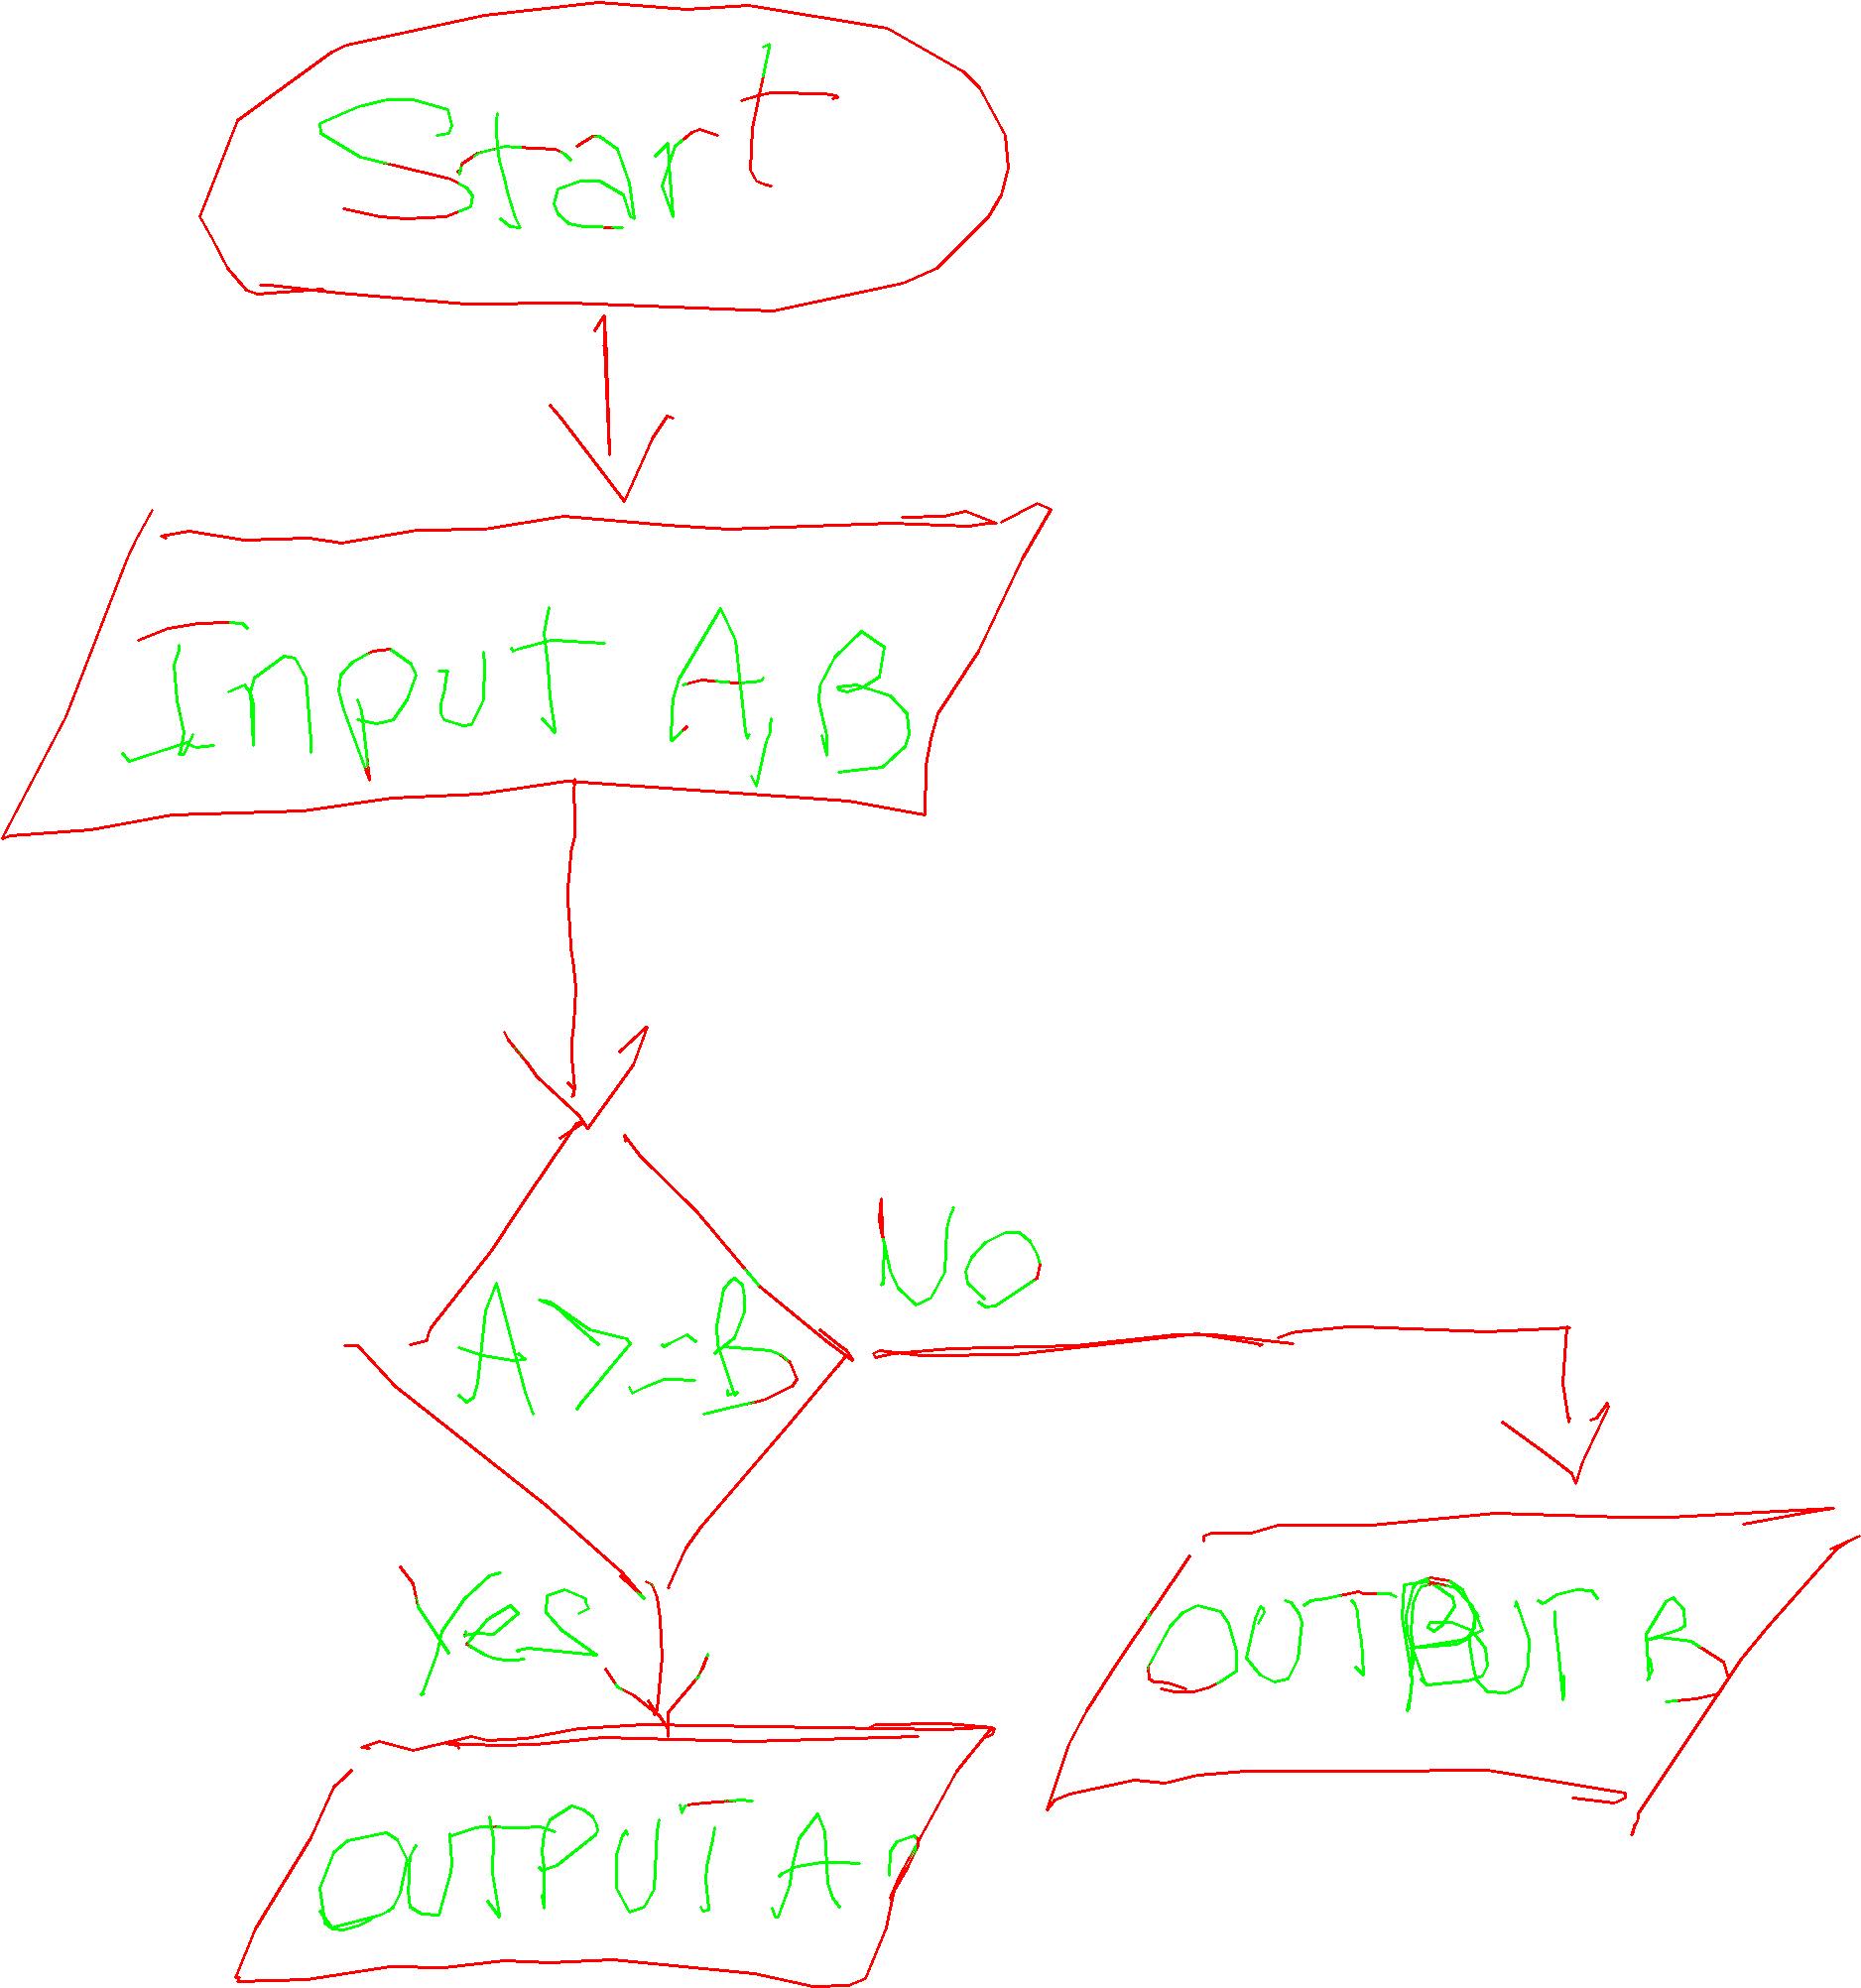 Start
Input A, B
No
A >= B
Yes
OUTPUT B
OUTPUT A